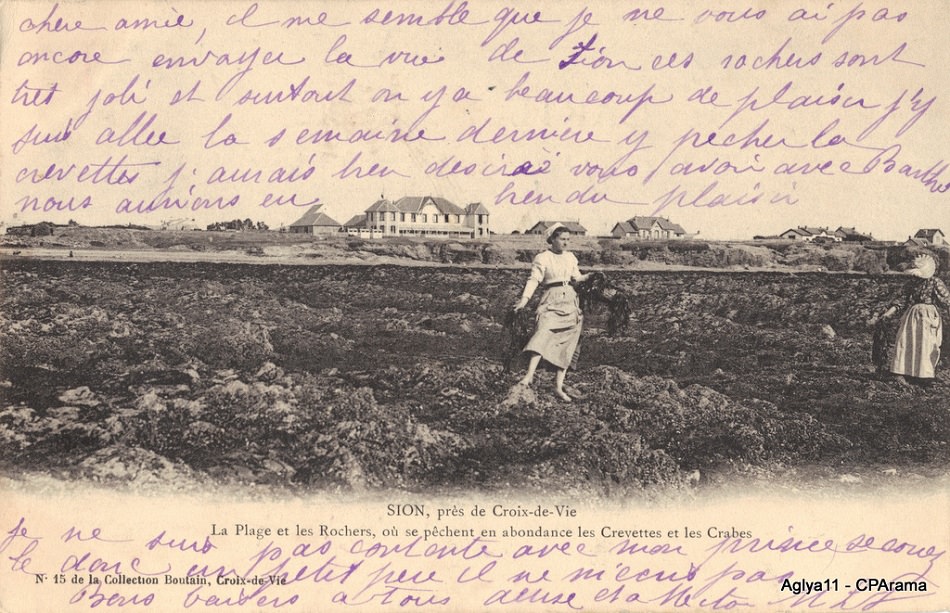 chère amie, il me semble que je ne vous ai pas
encore envoyer la vue de Sion ces rochers sont
tret joli et surtout on y a beaucoup de plaisir j'y
suis allee la semaine dernière y pecher la
crevettes j'aurais bien desirai vous avoir avec
nous aurions eu bien du plaisir
SION, près de Croix-de-Vie
La Plage et les Rochers, où se pêchent en abondance les Crevettes et les Crabes
je ne suis pas contente avec mon prince secouez
le donc un petit peu il ne m'ecris pas
N° 15 de la Collection Boutain, Croix-de-Vie
Bons baisers a tous deuse
Aglya11 - CPArama